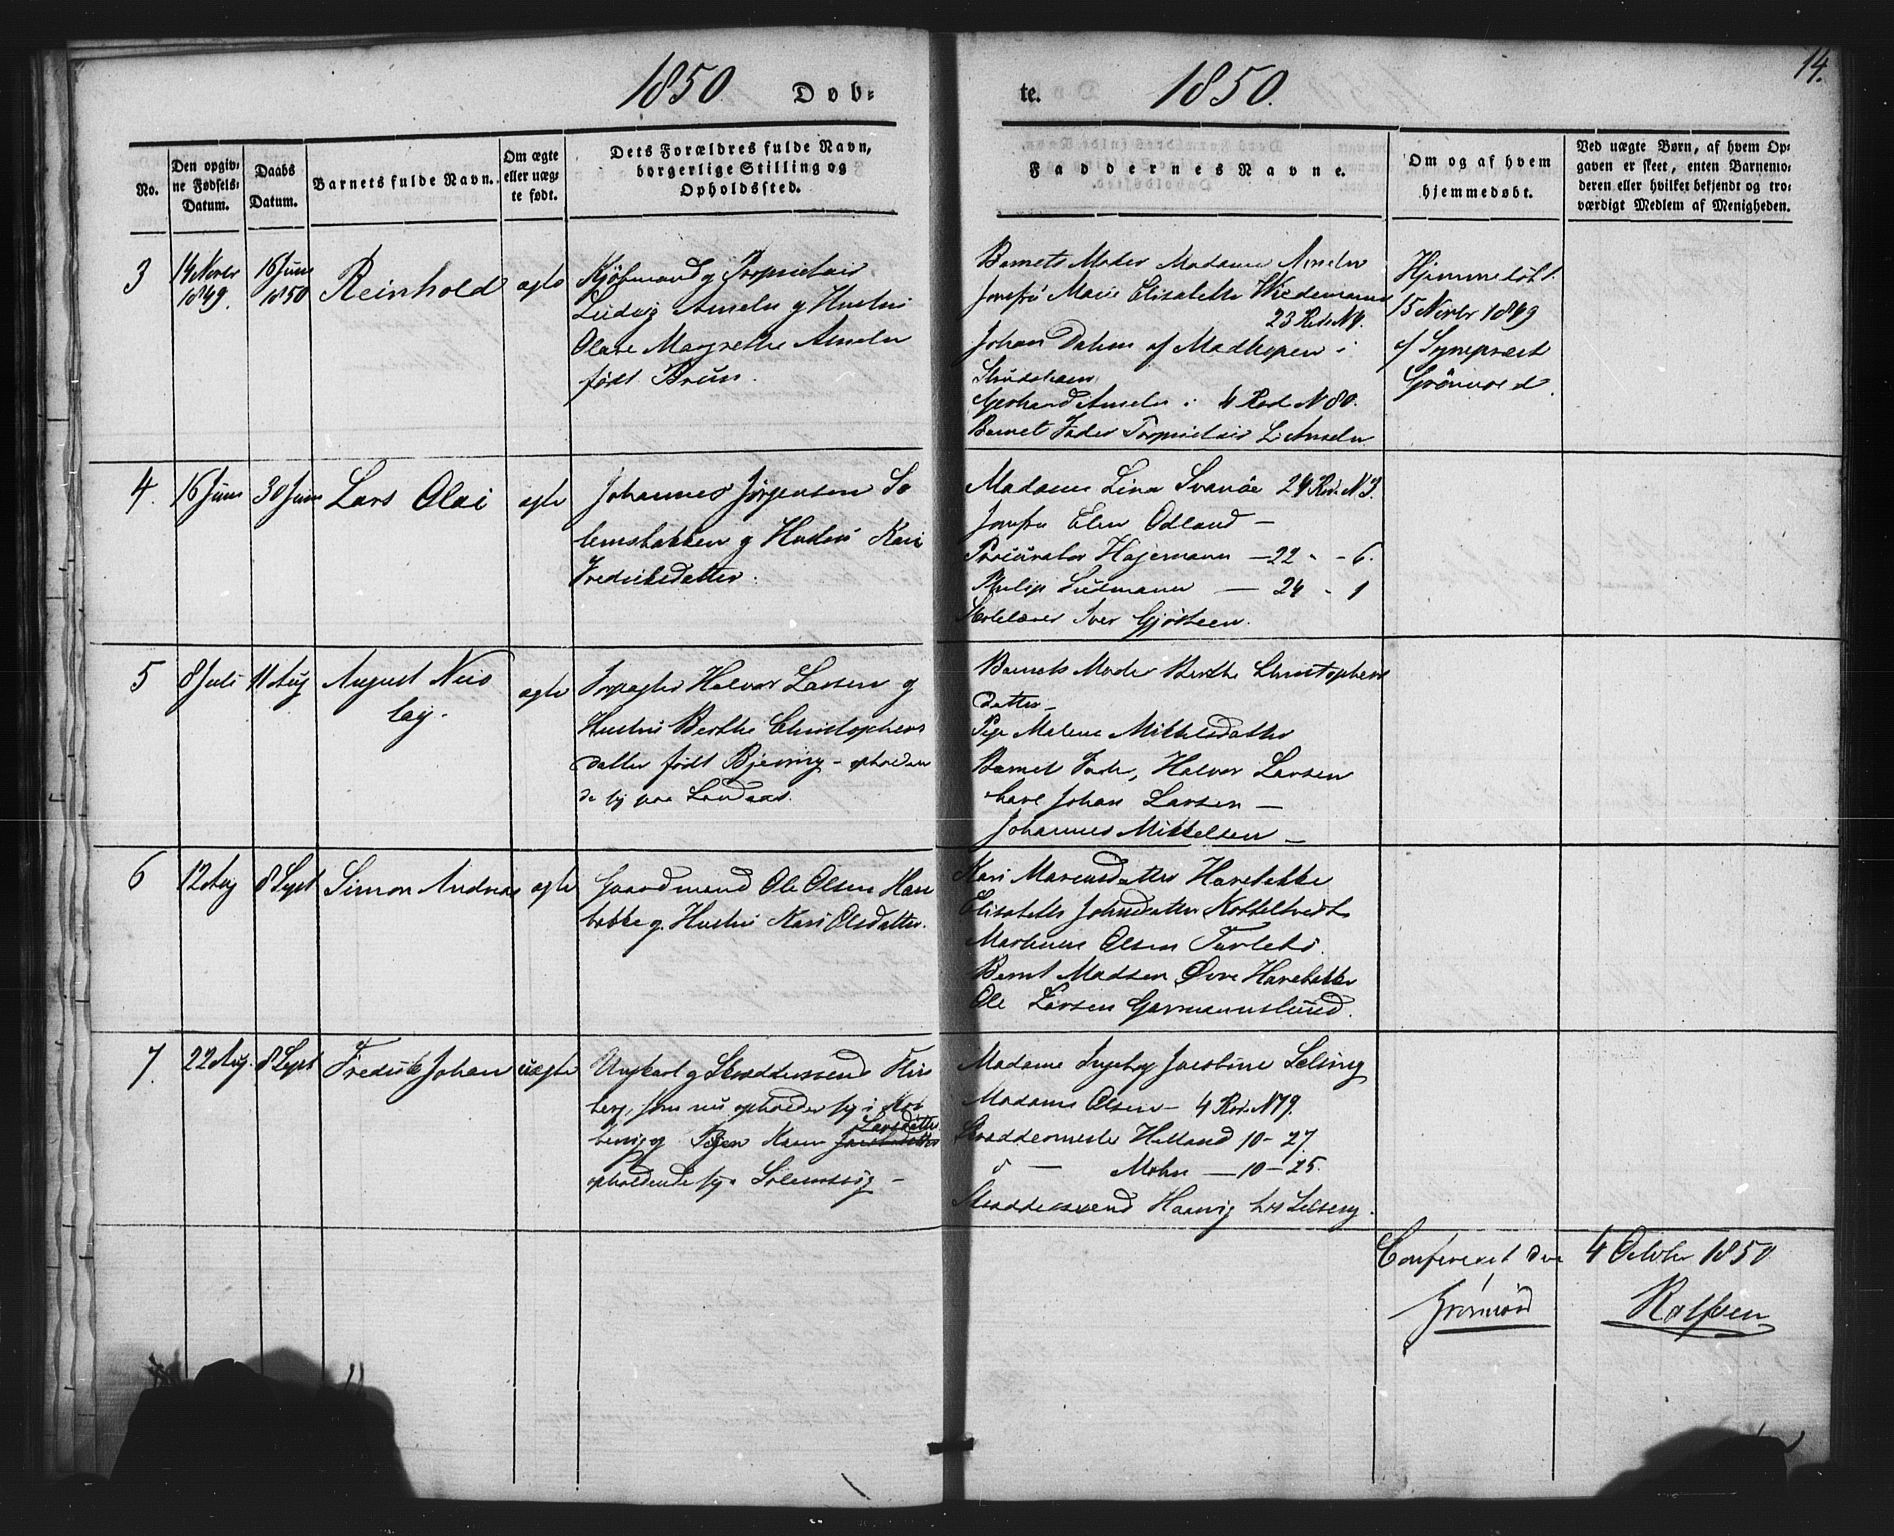 1850 Døb-
te. 1850. 14.
No.
Den opgiv-
ne Fødsels-
Datum.
Daabs
Datum.
Barnets fulde Navn.
Om ægte
eller uæg-
te født.
Dets Forældres fulde Navn,
borgerlige Stilling og
Opholdssted.
Faddernes Navne.
Om og af hvem
hjemmedøbt.
Ved uægte Børn, af hvem Op-
gaven er skeet, enten Barnemo-
deren eller hvilket bekjendt og tro-
værdigt Medlem af Menigheden.
3
14 Novbr
1849.
16 Juni
1850
Reinhold
ægte
Kjøbmand og Proprietair
Ludvig Amseln og Hustru
Olave Margrethe Amseln
født Brun.
Barnets Moder Madame Amseln
Jomfru Marie Elisabeth Wiedemann
23 Rod. N 4.
Johan Dahm af Madkopen i
Gerhard Amseln i 4 Rod N 80.
Barnets Fader Proprietair L. Amseln
Hjemmedøbt
15 Novbr 1849
af
Grönvold
4.
16 Juni
30 Juni
Lars Olai
ægte
Johannes Jörgensen So
lemsbakken og Hustru Kari
Fredriksdatter.
Madame Lina Svanöe 24 Rod. N 3.
Jomfru Elen Odland —
Procurator Hagemann — 22 - - 6.
Philip Sudmann — 24 - 1
Skolelærer Iver Gjösteen.
5
8 Juli
11 Aug
August Nico
lay.
ægte
Halvor Larsen og
Hustru Berthe Christophers
datter født Bjerring - opholden
de sig paa Landaas.
Barnets Moder Berthe Christophers
datter —
Pige Malene Mikkelsdatter
Barnets Fader, Halvor Larsen
Johan Larsen —
Johannes Mikkelsen —
6
12 Aug
8 Sept
Simon Andreas
ægte
Gaardmand Ole Olsen Hare
bakke og Hustru Kari Olsdatter.
Kari Monsdatter Harebakke
Elisabeth Johnsdatter Nattelsvedt
Martinus Olsen
Bernt Madsen Øvre Harebakke
Ole Larsen Garmannslund.
7.
22 Aug.
8 Sept
Fredrik Johan
uægte
Ungkarl og Skræddersvend
som nu opholder sig i
og Pigen Karen Larsdatter
opholdende sig i Solemsvig —
Madame Ingeborg Jacobine Selsing
Madame Olsen — 4 Rod. N 79.
Skræddermester Helland 10 - 27.
d — Mohn — 10 - 25.
Skræddersvend Haavig hos Selberg.
Confereret den 4 October 1850
Grönvold Rolfsen